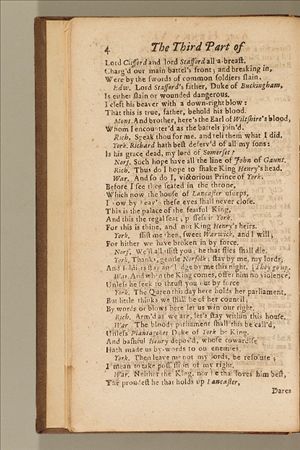 4 The Third Part of
Lord Clifford and lord Stafford all a-breast,
Charg'd our main battel's front; and breaking in,
Were by the swords of common soldiers slain.
Edw. Lord Stafford's father, Duke of Buckingham,
Is either slain or wounded dangerous.
I cleft his beaver with a down-right blow:
That this is true, father, behold his blood.
Mont. And brother, here's the Earl of Wiltshire's blood,
Whom I encounter'd as the battels join'd.
Rich. Speak thou for me, and tell them what I did.
York. Richard hath best deserv'd of all my sons:
Is his grace dead, my lord of Somerset?
Norf. Such hope have all the line of John of Gaunt.
Rich. Thus do I hope to shake King Henry's head.
War. And so do I, victorious Prince of York.
Before I see thee seated in the throne,
Which now the house of Lancaster usurps,
I vow by heav'n these eyes shall never close.
This is the palace of the fearful King,
And this the regal seat; possess it York,
For this is thine, and not King Henry's heirs.
York. Assist me then, sweet Warwick, and I will,
For hither we have broken in by force.
Norf. We'll all assist you; he that flies shall die.
York. Thanks, gentle Norfolk; stay by me, my lords,
And soldiers stay and lodge by me this night. [They go up.
War. And when the King comes, offer him no violence,
Unless he seek to thrust you out by force
York. The Queen this day here holds her parliament,
But little thinks we shall be of her council;
By words or blows here let us win our right.
Rich. Arm'd as we are, let's stay within this house.
War. The bloody parliament shall this be call'd,
Unless Plantagenet Duke of York be King,
And bashful Henry depos'd, whose cowardise
Hath made us by-words to our enemies.
York. Then leave me not my lords, be resolute;
I mean to take possession of my right.
War. Neither the King, nor he that loves him best,
The proudest he that holds up Lancaster,
Dares